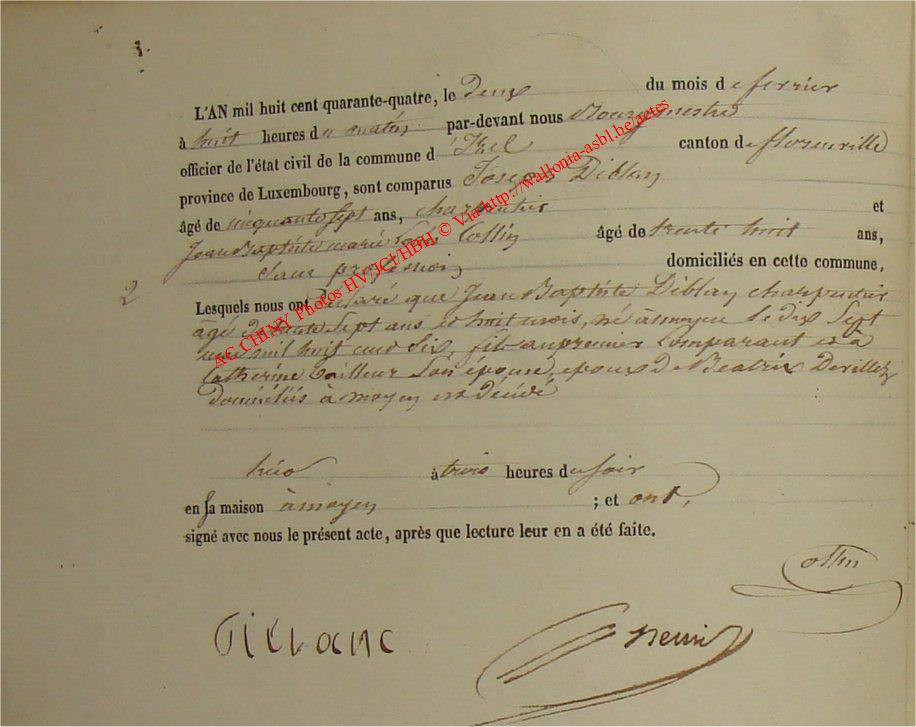 1.
L'AN mil huit cent quarante-quatre, le deux du mois de fevrier
à huit heures du matin par-devant nous Bourgmestre
officier de l'état civil de la commune d'Izel canton de florenville
province de Luxembourg, sont comparus Joseph Diblan
âgé de cinquante sept ans, charpentier et
Jean Baptiste marie Collin âgé de trente huit ans,
Sans profession domiciliés en cette commune,
2
Lesquels nous ont déclaré que Jean Baptiste Diblan charpentier
âgé de sept ans et huit mois, né à moyen le dix Sept
mil huit cent Six, fils au premier Comparant et à
Catherine Tailleur Son épouse, époux de Béatrix Devillez
domiciliés à moyen est décédé
hier à trois heures du soir
en sa maison à moyen ; et ont
signé avec nous le présent acte, après que lecture leur en a été faite.
Collin
henri
AC CHINY Photos HV/JCI/HBH © Via http://wallonia-asbl.be/actes